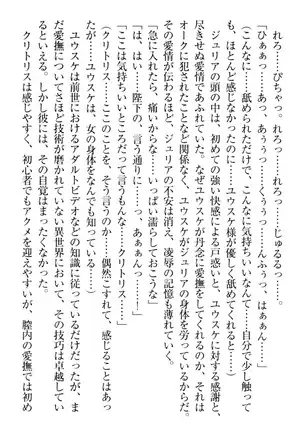 れろ……ぴちゃっ、れろ……じゅるるっ……
「ひぁぁっ…あっ、あぁぅっ……くぅぅっ、んふぁっ、はぁぁっ……」
（こんなに……舐められただけで、こんなに気持ちいいなんて……自分で少し触って
も、ほとんど感じなかったのに……ユウスケ様が優しく舐めてくれると……）
ジュリアの頭の中は、初めての強い快感による戸惑いと、ユウスケに対する感謝と、
尽きせぬ愛情であふれていた。なぜユウスケが丹念に愛撫をしてくれるのか、それは
オークに犯されたことなど関係なく、ユウスケがジュリアを愛しているからなのだ。
その愛情が伝わるほど、ジュリアの不安は消え、凌辱の記憶も薄れていく。
「急に入れたら、痛いからな……いっぱい濡らしておこうな」
「は……はい……陛下の、言う通りに……っ、あぁぁんっ……」
「ここは気持ちいいところだって言うもんな……クリトリス……」
（クリトリス……ここのことを、そう言うのか……偶然こすれて、感じることはあっ
たが……ユウスケは、女の身体をなんでも知っている……）
ユウスケは前世におけるアダルトビデオなどの知識に従っているだけだったが、ま
だ愛撫についてさほど技術が磨かれていない異世界において、その技巧は卓越してい
るといえる。しかし彼には、その自覚はまったくなかった。
クリトリスは感じやすく、初心者でもアクメを迎えやすいが、膣内の愛撫では初め